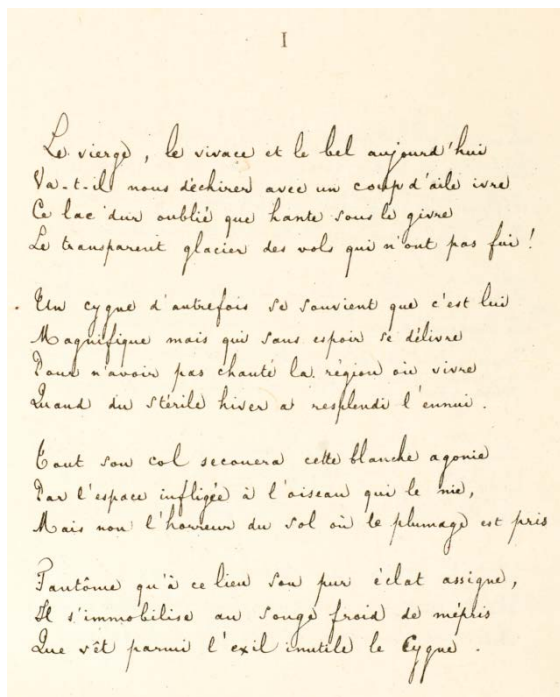 I
Le vierge, le vivace et le bel aujourd'hui
Va-t-il nous déchirer avec un coup d'aile ivre
Ce lac dur oublié que hante sous le givre
Le transparent glacier des vols qui n'ont pas fui !
Un cygne d'autrefois se souvient que c'est lui
Magnifique mais qui sans espoir se délivre
Pour n'avoir pas chanté la région où vivre
Quand du stérile hiver a resplendi l'ennui.
Tout son col secouera cette blanche agonie
Par l'espace infligée à l'oiseau qui le nie,
Mais non l'horreur du sol où le plumage est pris
Fantôme qu'à ce lieu son pur éclat assigne,
Il s'immobilise au songe froid de mépris
Que vêt parmi l'exil inutile le Cygne.